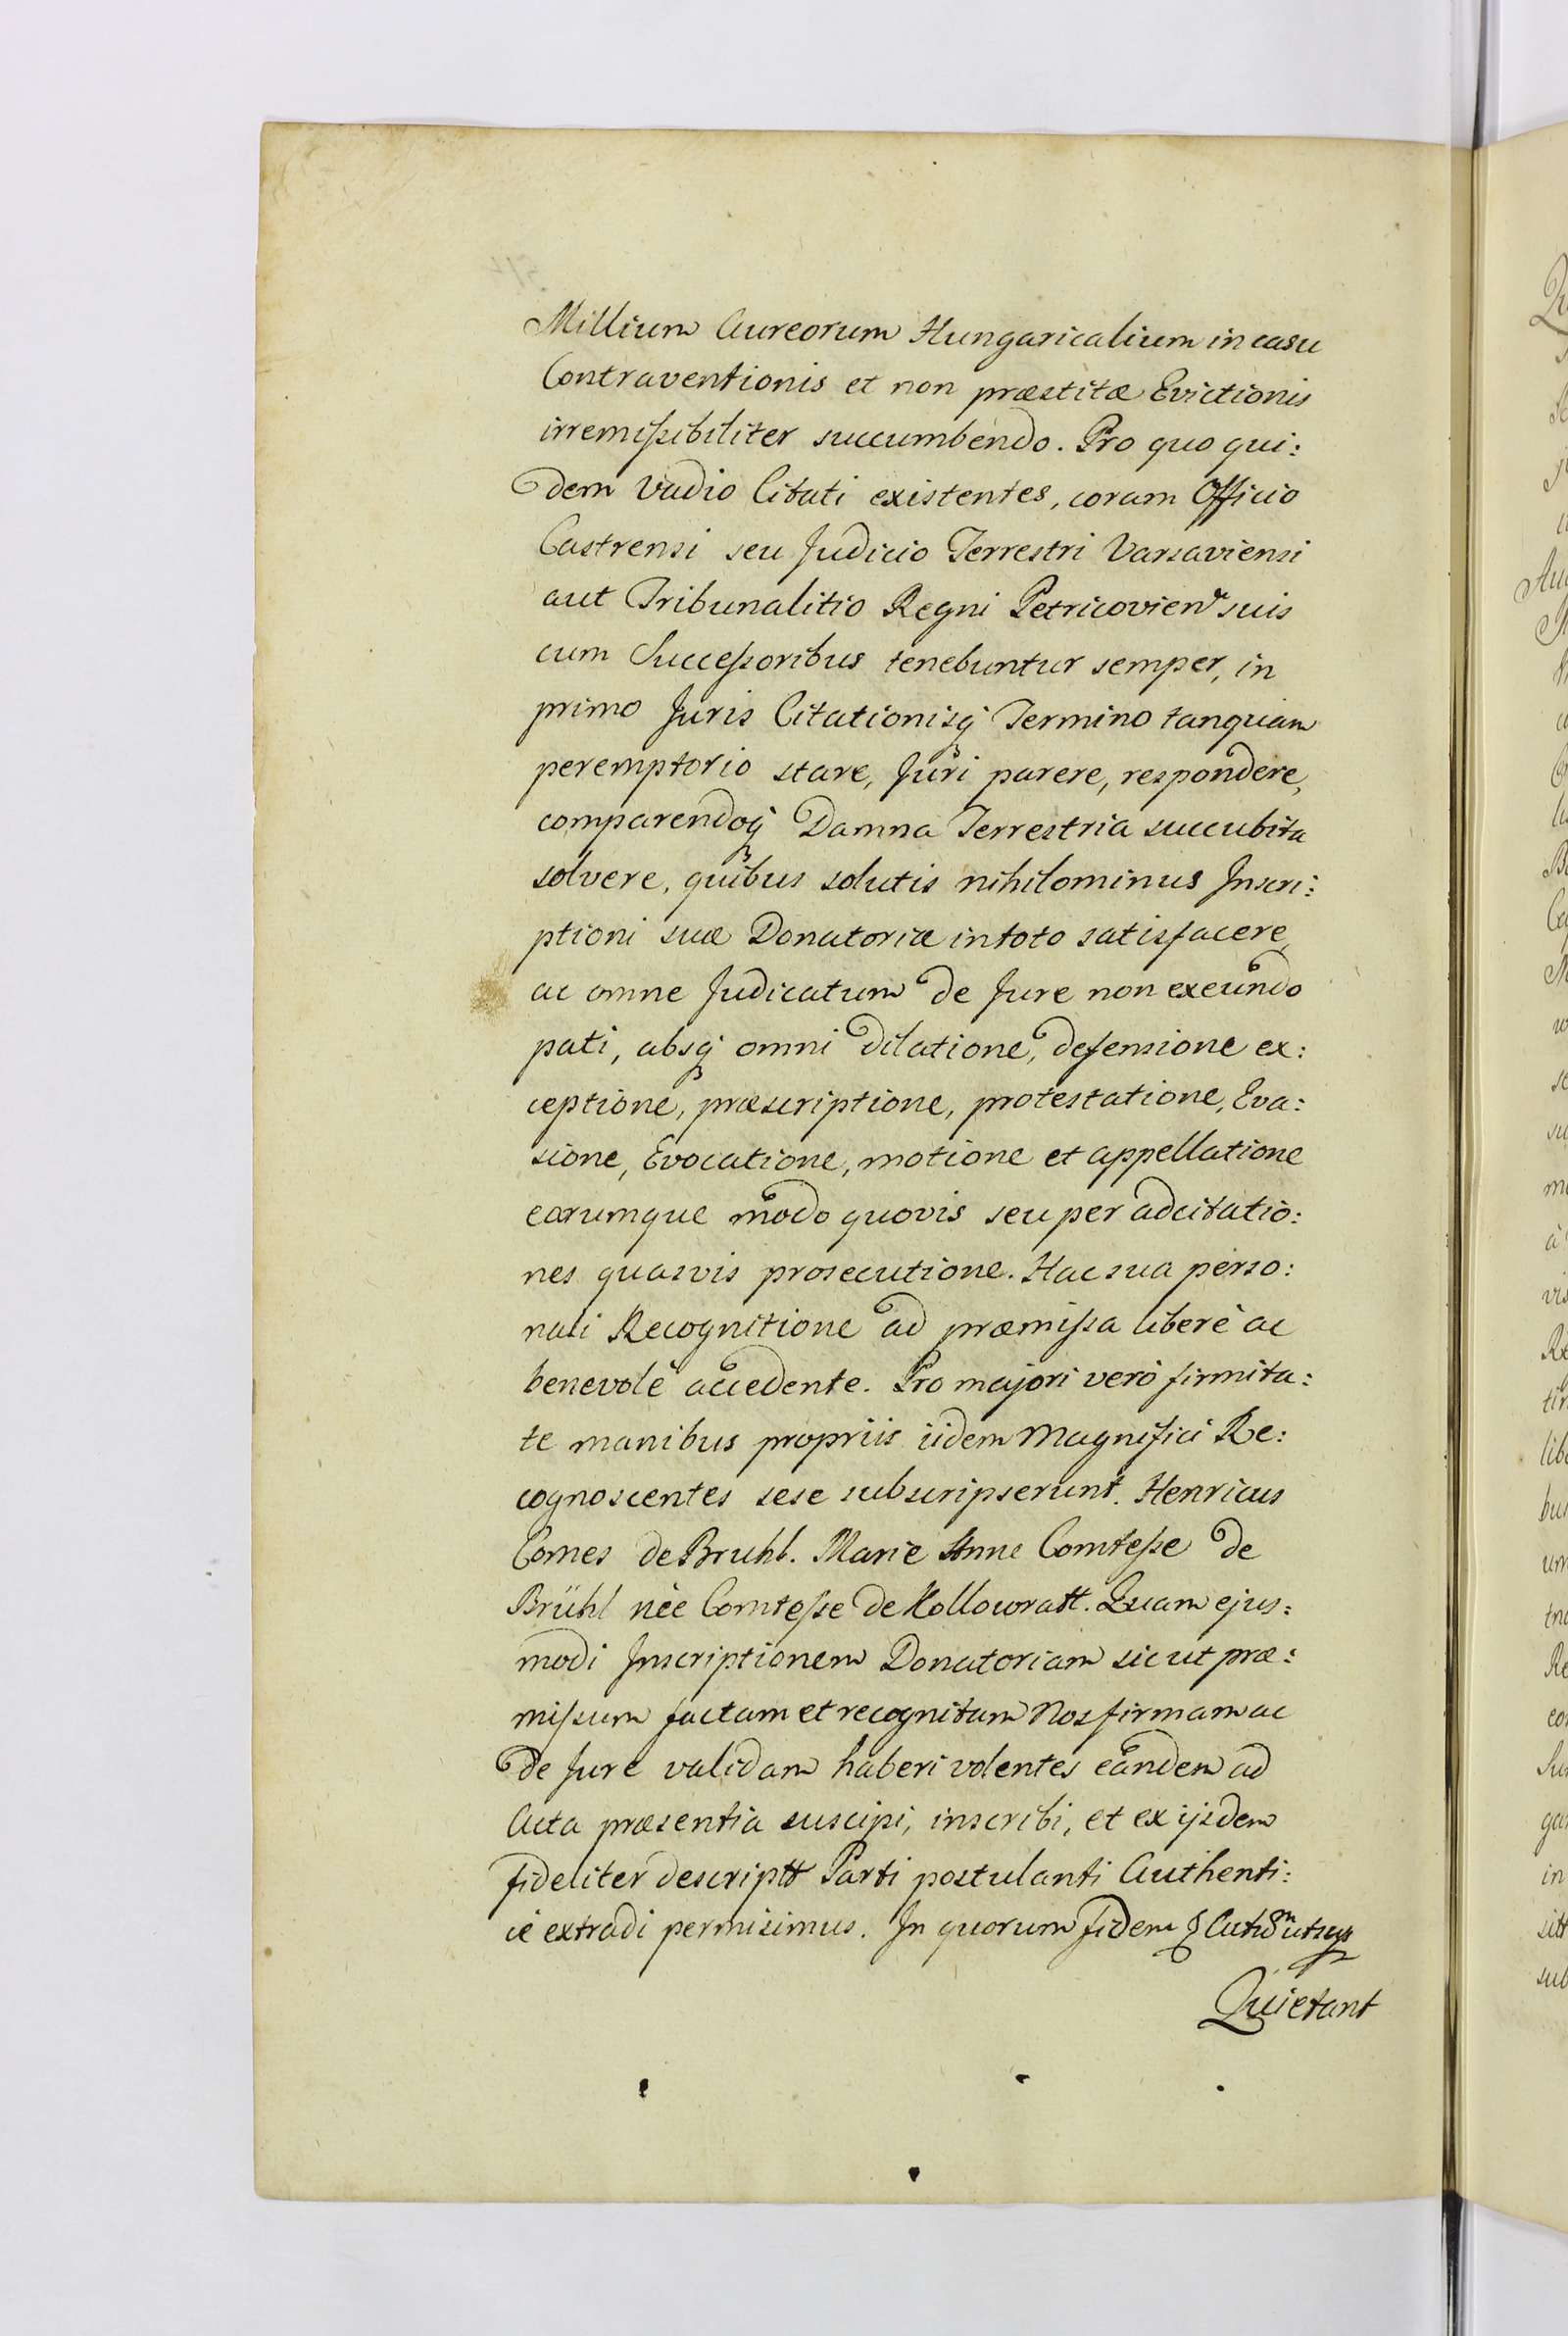 Millium Aureorum Hungaricalium in casu
Contraventionis et non præstitæ Evictionis
irremißibiliter succumbendo. Pro quo qui:
dem Vadio Citati existentes, coram Officio
Castrensi seu Judicio Terrestri Varsaviensi
aut Tribunalitio Regni Petricovien suis
cum Succeßoribus tenebuntur semper, in
primo Juris Citationisq Termino tanquam
peremptorio stare, Juri parere, respondere,
comparendoq Damna Terrestria succubita
solvere, quibus solutis nihilominus Inscri:
ptioni suæ Donatoriæ in toto satisfacere,
ac omne Judicatum de Jure non exeundo
pati, absq omni dilatione, defensione ex:
ceptione, præscriptione, protestatione, Eva:
sione, Evocatione, motione et appellatione
earumque modo quovis seu per adcitatio:
nes quasvis prosecutione. Hac sua perso:
nali Recognitione ad præmißa liberè ac
benevolè accedente. Pro majori verò firmita:
te manibus propriis iidem Magnifici Re:
cognoscentes sese subscripserunt. Henricus
Comes de Bruhl. Marie Anne Comteße de
Brühl nèe Comteße de Kollowratt. Quam ejus:
modi Inscriptionem Donatoriam sic ut præ:
mißum factam et recognitam Nos firmam ac
de Jure validam haberi volentes eandem ad
Acta præsentia suscipi, inscribi, et ex ijsdem
fideliter descriptt Parti postulanti Authenti:
cè extradi permisimus. In quorum fidem
Quietant